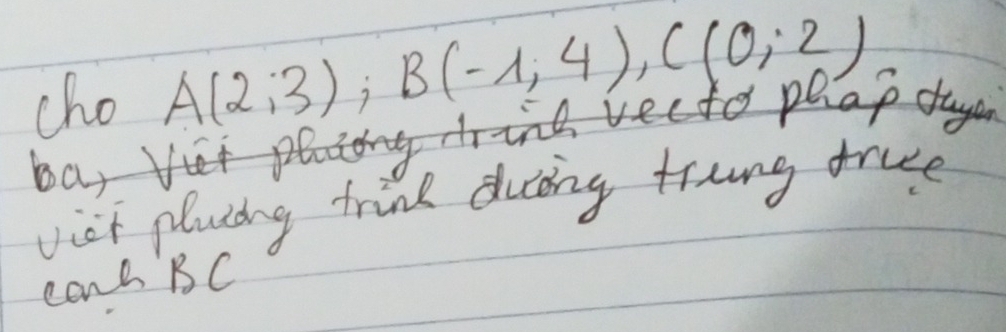 Cho A(2;3); B(-1;4), C(0;2)
ba, Viết phương trình vectơ pháp tuyến
viết phương trình đường trung trực
cạnh BC